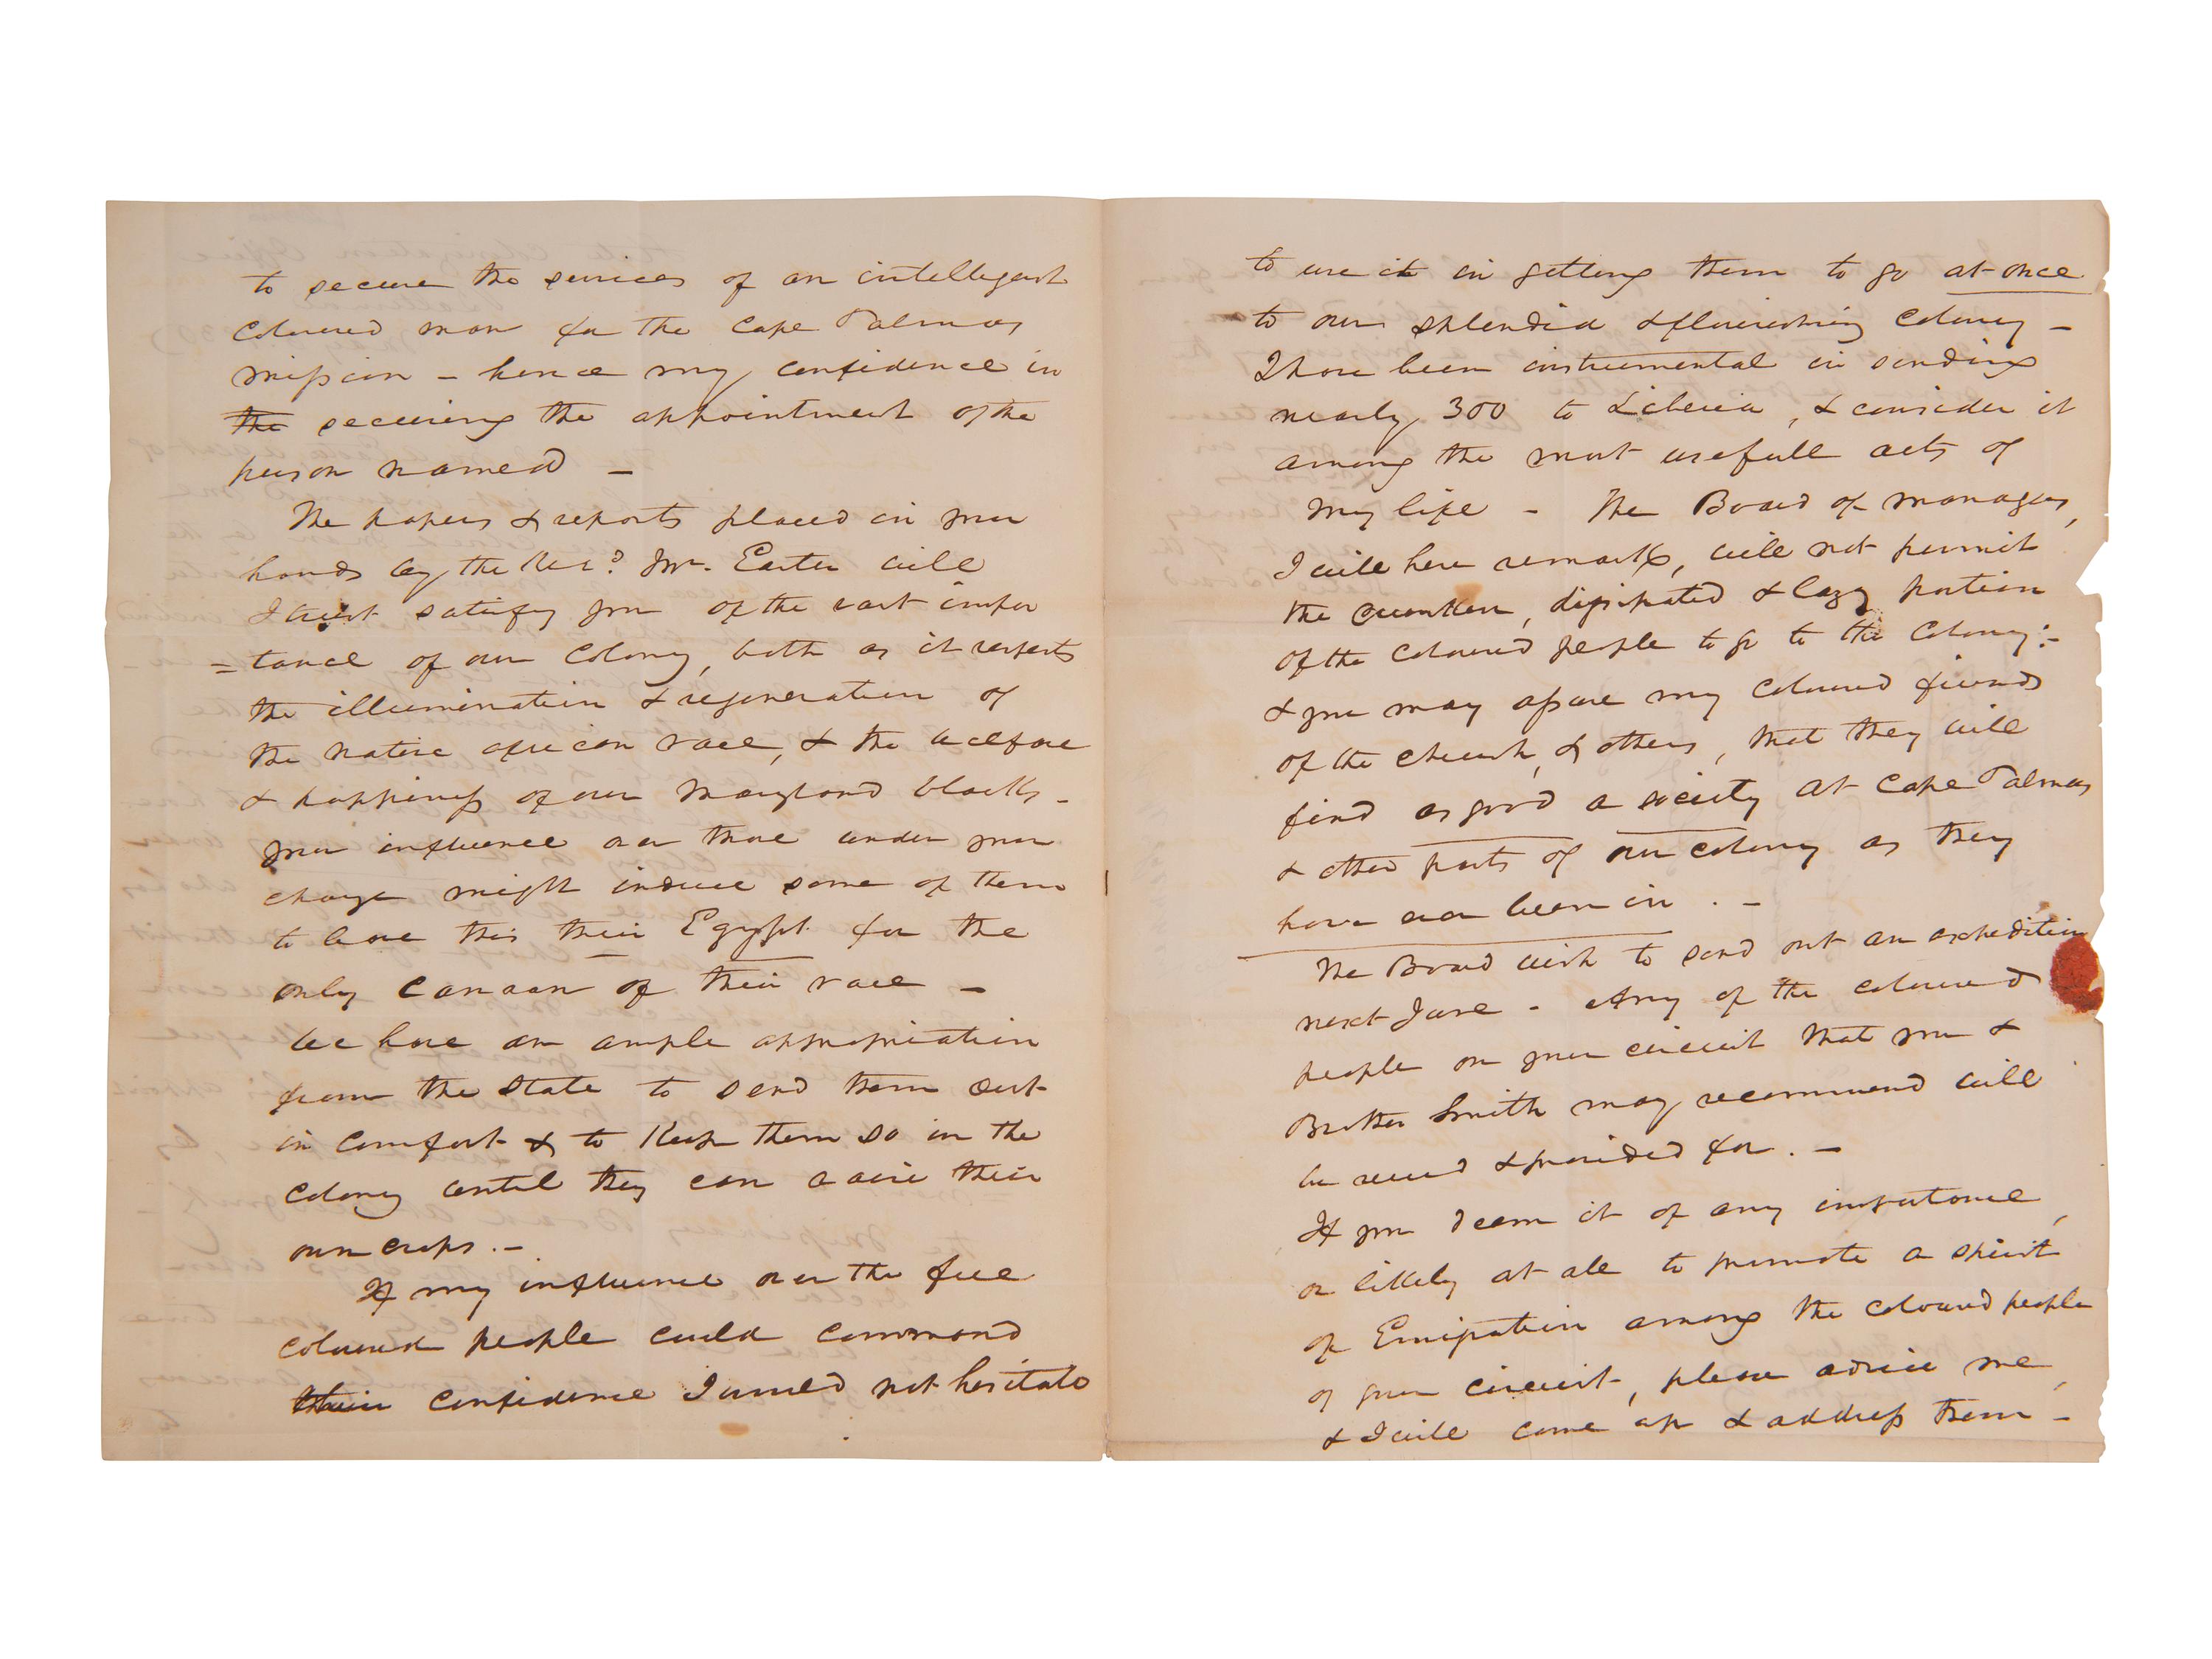 to secure the services of an intellegent
Coloured man for the Cape Palmas
mission – hence my confidence in
the securing the appointment of the
person named –
The papers & reports placed in your
hands by the Revd Mr. Easter will
I trust satisfy you of the vast impor
= tance of our Colony, both as it respects
the illumination & regeneration of
the native african race, & the welfare
& happiness of our Maryland blacks –
your influence over those under your
charge might induce some of them
to leave this their Egypt for the
only Canaan of their race –
We have an ample appropriation
from the State to send them out
in comfort & to Keep them so in the
Colony until they can raise their
own crops. –
If my influence over the free
coloured people could command
their confidence I would not hesitate
to use it in getting them to go at once
to our splendid & flourishing colony –
I have been instrumental in sending
nearly 300 to Liberia, & consider it
among the most usefull acts of
my life – The Board of managers,
I will here remark, will not permit
the drunken, dissipated & lazy portion
of the coloured people to go to the Colony: –
& you may assure my coloured friends
of the church, & others, that they will
find as good a society at Cape Palmas
& other parts of our colony as they
have ever been in. –
The Board wish to send out an expedition
next June – Any of the coloured
people on your circuit that you &
Brother Smith may recommend will
be recd & provided for. –
If you deem it of any importance,
or likely at all to promote a spirit
of Emigration among the coloured people
of your circuit, please advise me,
& I will come up & address them –